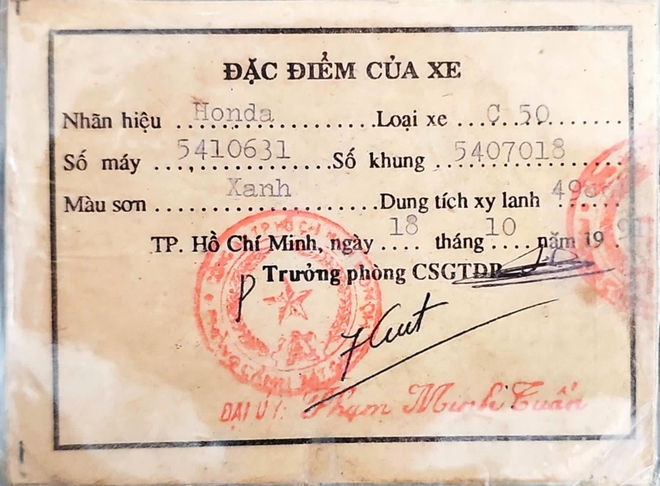 ĐẶC ĐIỂM CỦA XE
Nhãn hiệu Honda Loại xe C 50
Số máy 5410631 Số khung 5407018
Màu sơn Xanh Dung tích xy lanh 49cc
TP. Hồ Chí Minh, ngày 18 tháng 10 năm 19
P Trưởng phòng CSGTĐB
ĐẠI ÚY: Phạm Minh Tuấn